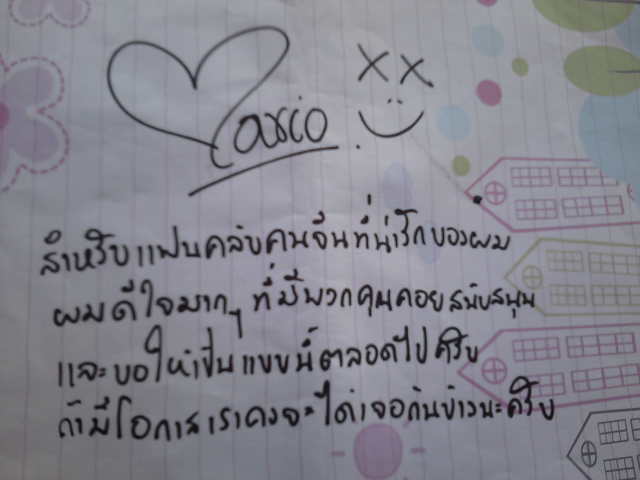 Mario
xx
สำหรับแฟนคลับคนจีนที่น่ารักของผม
ผมดีใจมากๆ ที่มีพวกคุณคอยสนับสนุน
และขอให้เป็นแบบนี้ตลอดไปครับ
ถ้ามีโอกาสเราคงจะได้เจอกันบ้างนะครับ